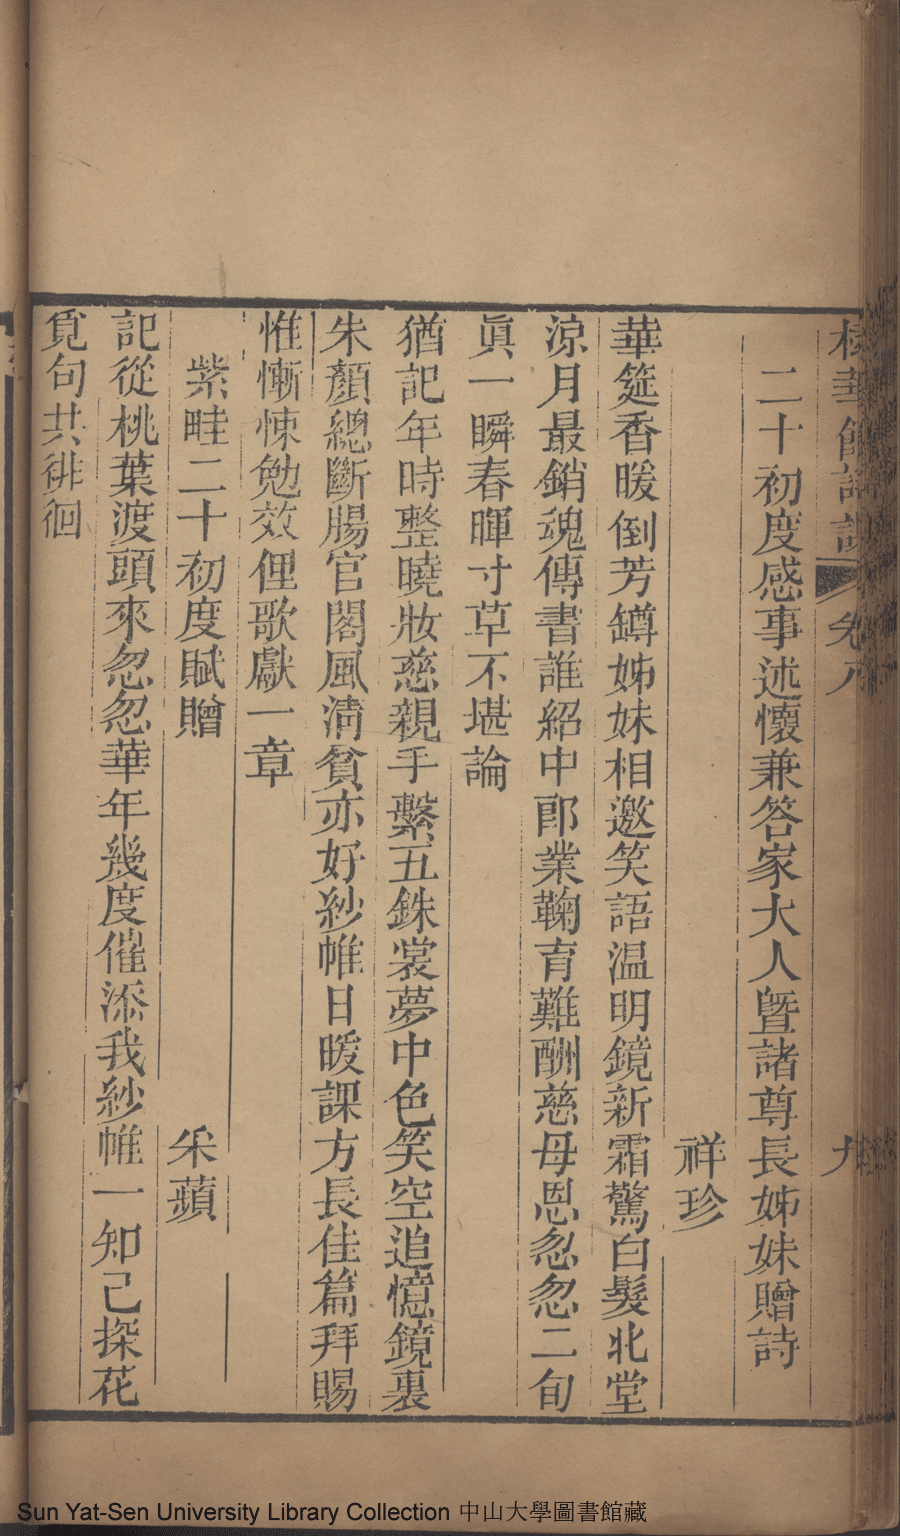 二十初度感事述懷兼答家大人曁諸尊長姊妹贈詩
祥珍
華筵香暖倒芳罇姊妹相邀笑語温明鏡新霜驚白髮北堂
涼月最銷魂傳書誰紹中郎業鞠育難酬慈母恩忽忽二旬
眞一瞬春暉寸草不堪論
猶記年時整曉妝慈親手繫五銖裳夢中色笑空追憶鏡裏
朱顏總斷腸官閣風淸貧亦好紗帷日暖課方長佳篇拜賜
惟慚悚勉效俚歌獻一章
紫畦二十初度賦贈
采蘋
記從桃葉渡頭來忽忽華年幾度催添我紗帷一知己探花
覓句共徘徊
Sun Yat-Sen University Library Collection 中山大學圖書館藏